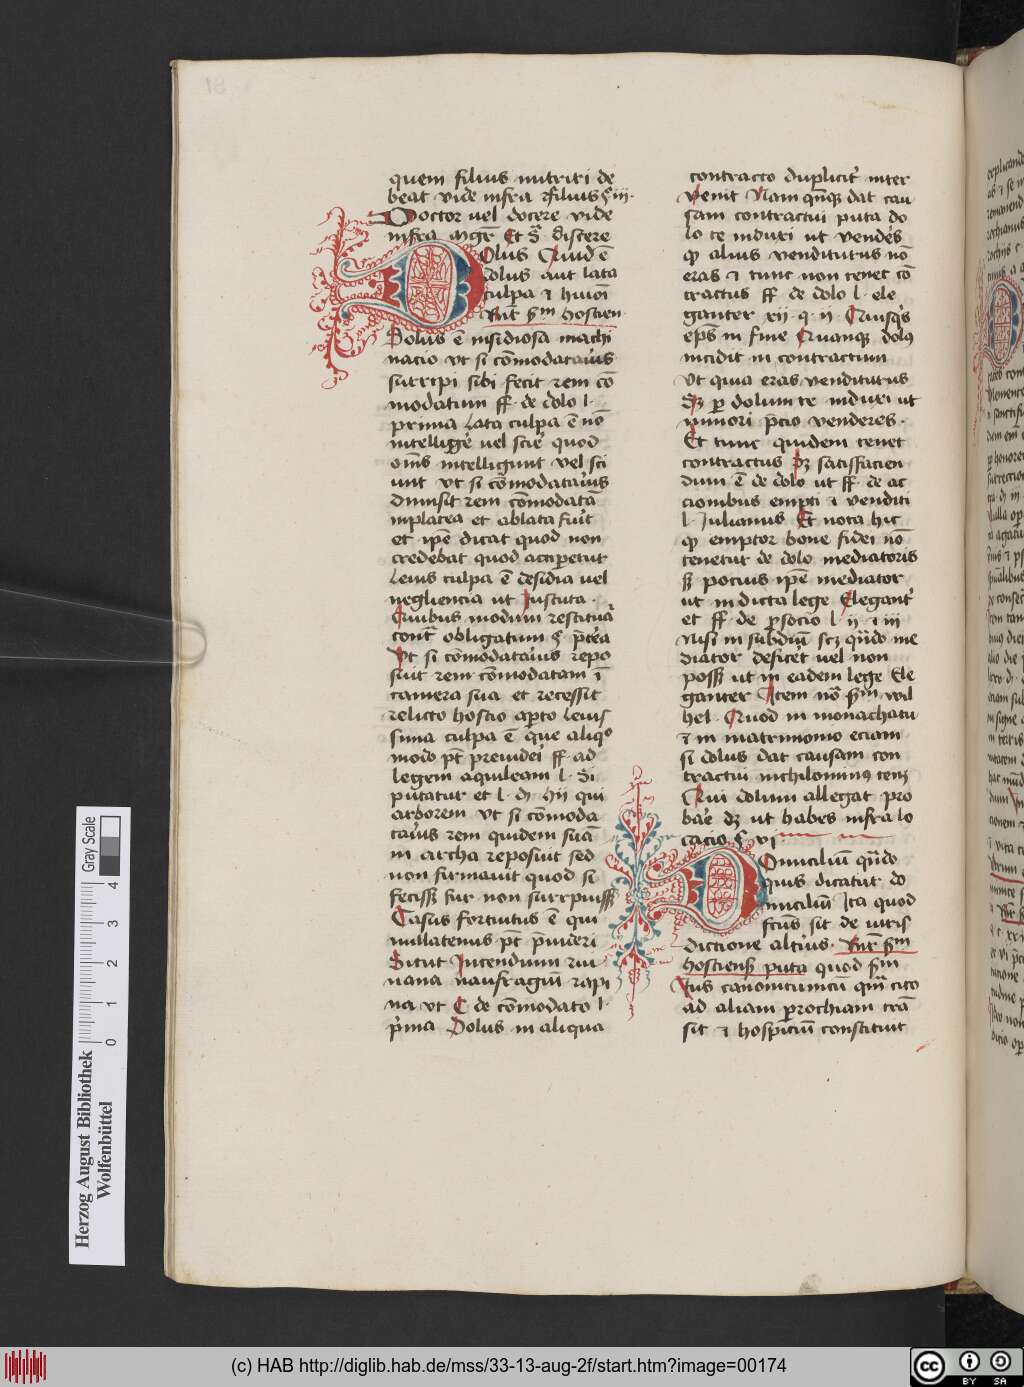 quem filius nutriri de
beat vide infra filius § iii·
Doctor uel docere vide
infra mgr̄ Et s̄ discere
Dolus Quid ē
dolus aut lata
culpa ⁊ huiōi
Rn̄t sm̄ hostien·
Dolus ē insidiosa machi
nacio vt si cōmodatarius
surripi sibi fecit rem cō
modatum ff· de dolo l·
prima Lata culpa ē nō
intelligere vel scire quod
oms̄ intelligunt vel sci
unt vt si cōmodatarius
dimisit rem cōmodatā
in platea et ablata fuit
et ipē dicat quod non
credebat quod acciperetur
Leuis culpa ē desidia uel
negliencia ut
Quibus modum restitua
obligatum
Vt si cōmodatarius repo
suit rem cōmodatam ī
camera sua et recessit
relicto hostio aperto leuis
sima culpa ē que aliqo
modo pt̄ preuideri ff· ad
legem aquileam l· si
putatur et l· qui
arborem vt si cōmoda
tarius rem quidem suā
in archa reposuit sed
non firmauit quod si
fecissꝫ fur non surripuissꝫ
Casus fortuitus ē qui
nullatenus pt̄ preuideri
Sicut Incendium rui
nana naufragium rapi
na vt C de cōmodato l·
prima Dolus in aliqua
contracto dupliciter inter
venit Nam quandoque dat cau
sam contractui puta do
lo te induxi ut venderes
qꝫ alius venditurus nō
eras ⁊ tunc non tenet cō
tractus ff· de dolo l· ele
ganter xii q· ii Cuiusq̄s
eps̄ in fine Quandoque dolus
incidit in contractum
Vt quia eras venditurus
sꝫ per dolum te induxi ut
minori precio venderes·
Et tunc quidem tenet
contractus sꝫ satisfacien
dum ē de dolo ut ff· de ac
cionibus empti ⁊ venditi
l· Julianus Et nota hic
qꝫ emptor bone fidei nō
tenetur de dolo mediatoris
sꝫ pocius ipē mediator
ut in dicta lege Eleganter
et ff· de pro socio l· ii ⁊ iii
Nisi in subdium scꝫ quando me
diator deficeret uel non
possꝫ ut in eadem lege Ele
ganter Item nō sm̄ wil
hel· Quod in monachatu
⁊ in matrimonio eciam
si dolus dat causam con
tractui nichilominus tenꝫ
Qui dolum allegat pro
bare dꝫ ut habes infra lo
cacio § vi
Domicilium quando
quis dicatur do
micilium Ita quod
fctūs sit de iuris
dictione alterius· Rn̄t sm̄
hostiensꝫ puta quod sm̄
ius canonicum cito
ad aliam parochiam
sit ⁊ hospicium constituit
Herzog August Bibliothek
Wolfenbüttel
0 1 2 3 4
Gray Scale
(c) HAB http://diglib.hab.de/mss/33-13-aug-2f/start.htm?image=00174
cc BY SA